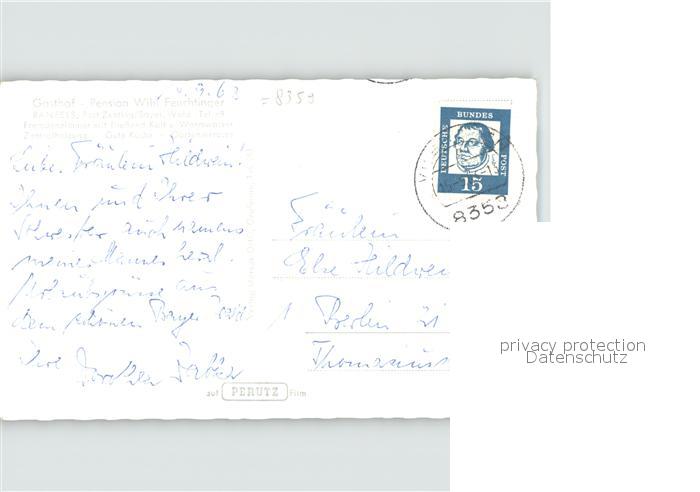 =8359
Gasthof - Pension Wilh. Feuchtinger
RANFELS, Post Zenting/Bayer. Wald
Fremdenzimmer mit fließend Kalt- u. Warmwasser
Zentralheizung Gute Küche
Liebe Fräulein Hildwein!
Ihnen und Ihrer
Schwester auch namens
meines Mannes herzl.
Urlaubsgrüsse aus
dem schönen Bayr. Wald
Ihre
auf PERUTZ Film
DEUTSCHE BUNDES POST
15
8353
Fräulein
Else Hildwein
1 Berlin 21
Thomasius
privacy protection
Datenschutz